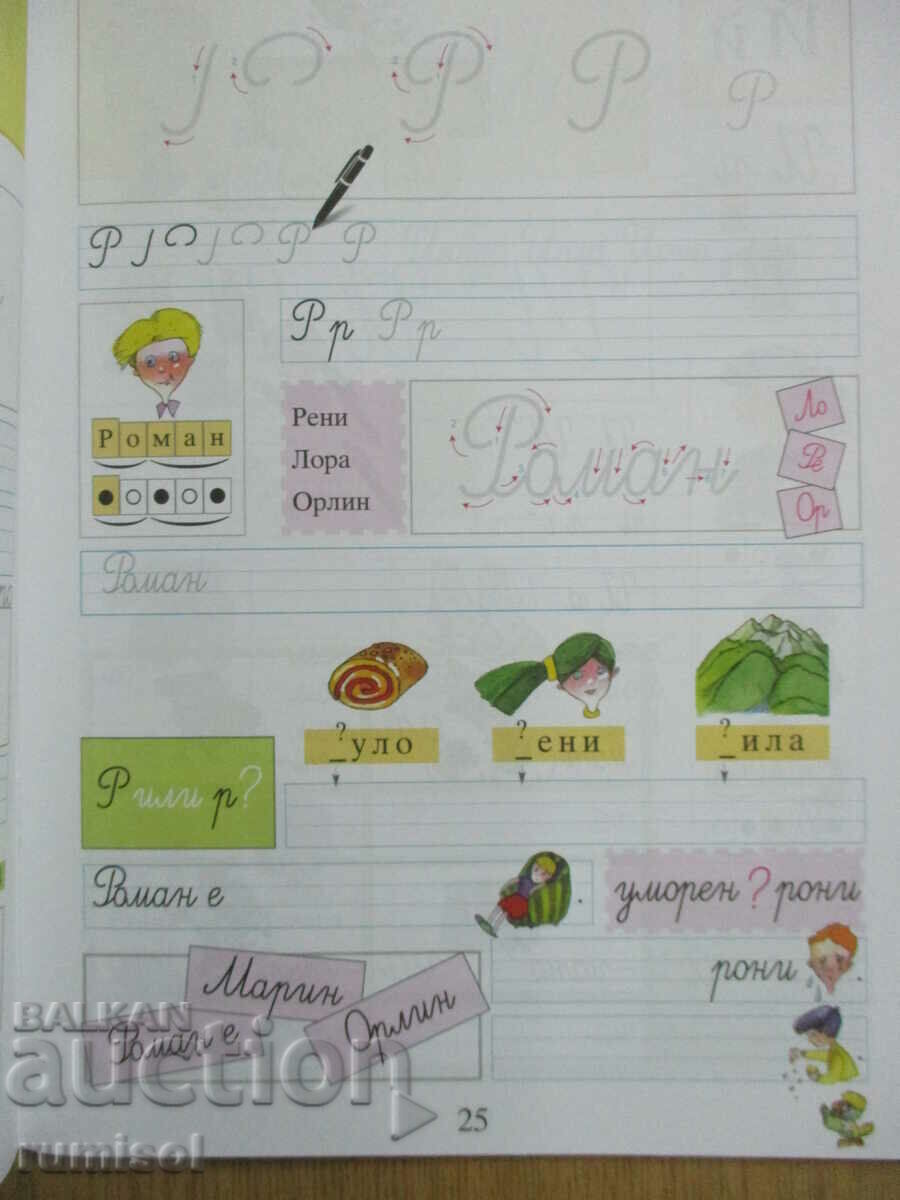 Р Р Р
Р Р Р
Р р Р р
Роман
Рени
Лора
Орлин
Роман
Ло
Ре
Ор
Роман
?
_уло
?
_ени
?
_ила
Р или р?
Роман е .
уморен ? рони
рони .
Марин
Роман е
Орлин
25
BALKAN
auction
rumisol